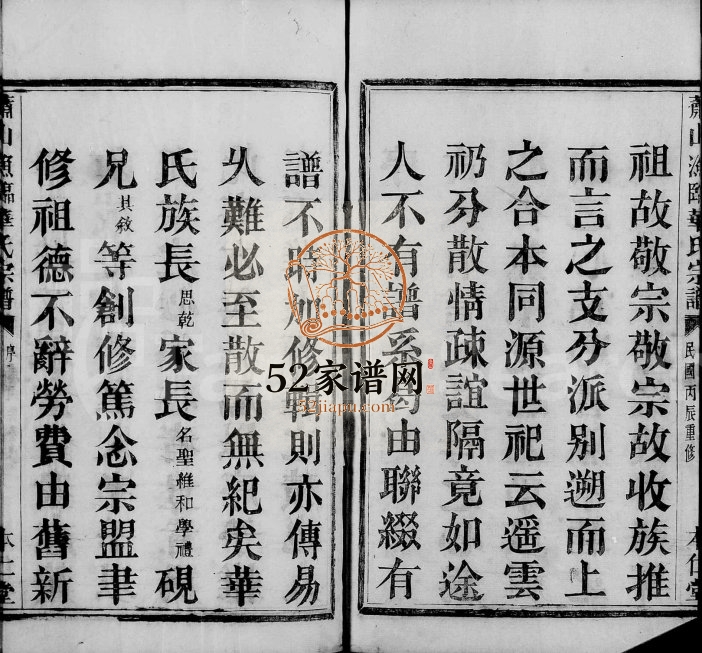 民國丙辰重修
祖故敬宗敬宗故收族推
而言之支分派别遡而上
之合本同源世祀云遥雲
礽分散情疎誼隔竟如途
人不有譜系曷由聯綴有
譜不時加修輯則亦傳易
乆難必至散而無紀矣華
氏族長思乾家長名聖維和學禮硯
兄其敘等創修篤念宗盟聿
修祖德不辭勞費由舊新
蕭山漁臨華氏宗譜 序 本仁堂
52家谱网
52jiapu.com